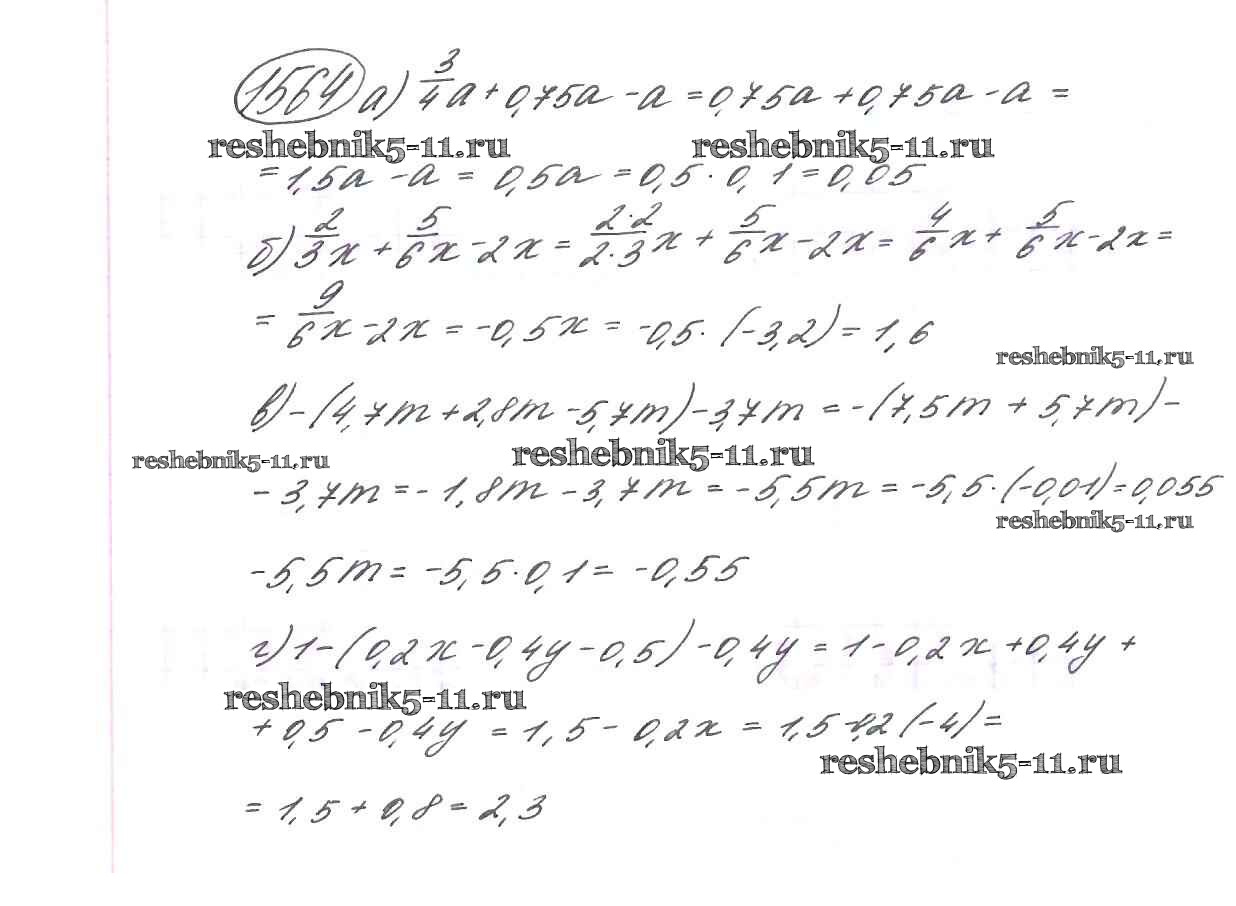 1564 а) 3/4a + 0,75a - a = 0,75a + 0,75a - a =
reshebnik5-11.ru reshebnik5-11.ru
= 1,5a - a = 0,5a = 0,5 · 0,1 = 0,05
б) 2/3x + 5/6x - 2x = 2·2/2·3x + 5/6x - 2x = 4/6x + 5/6x - 2x =
= 9/6x - 2x = -0,5x = -0,5 · (-3,2) = 1,6
reshebnik5-11.ru
в) - (4,7m + 2,8m - 5,7m) - 3,7m = -(7,5m + 5,7m) -
reshebnik5-11.ru reshebnik5-11.ru
- 3,7m = - 1,8m - 3,7m = - 5,5m = -5,5 · (-0,01) = 0,055
reshebnik5-11.ru
-5,5m = -5,5 · 0,1 = -0,55
г) 1 - (0,2x - 0,4y - 0,5) - 0,4y = 1 - 0,2x + 0,4y +
reshebnik5-11.ru
+ 0,5 - 0,4y = 1,5 - 0,2x = 1,5 - 0,2 (-4) =
reshebnik5-11.ru
= 1,5 + 0,8 = 2,3